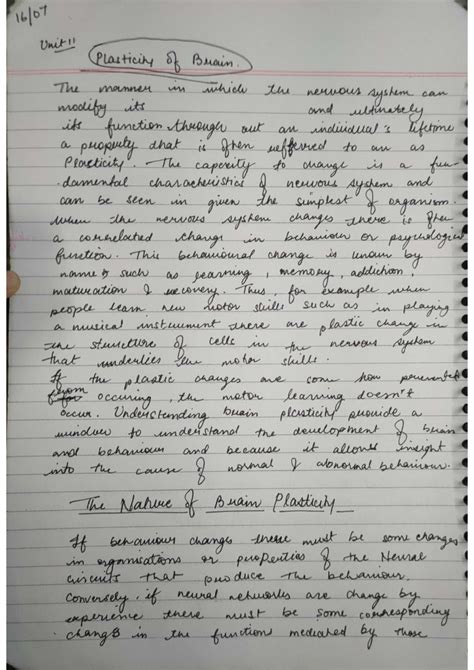 16/07
Unit 11
Plasticity of Brain.
The manner in which the nervous system can
modify its and ultimately
its function through out an individual's lifetime
a property that is often refferred to an as
Plasticity. The capacity to change is a fun-
damental characteristics of nervous system and
can be seen in given the simplest of organism.
when the nervous system changes there is often
a correlated change in behaviour or psychological
function. This behavioural change is known by
names such as learning, memory, addiction,
maturation & recovery. Thus, for example when
people learn new motor skills such as in playing
a musical instrument there are plastic change in
the structure of cells in the nervous system
that underlies the motor skills.
If the plastic changes are some how prevented
from occuring, the motor learning doesn't
occur. Understanding brain plasticity provide a
window to understand the development of brain
and behaviour and because it allows insight
into the cause of normal & abnormal behaviour.
The Nature of Brain Plasticity
If behaviour changes there must be some changes
in organisations or properties of the Neural
circuits that produce the behaviour.
conversely, if neural networks are change by
experience there must be some corresponding
change in the functions mediated by those